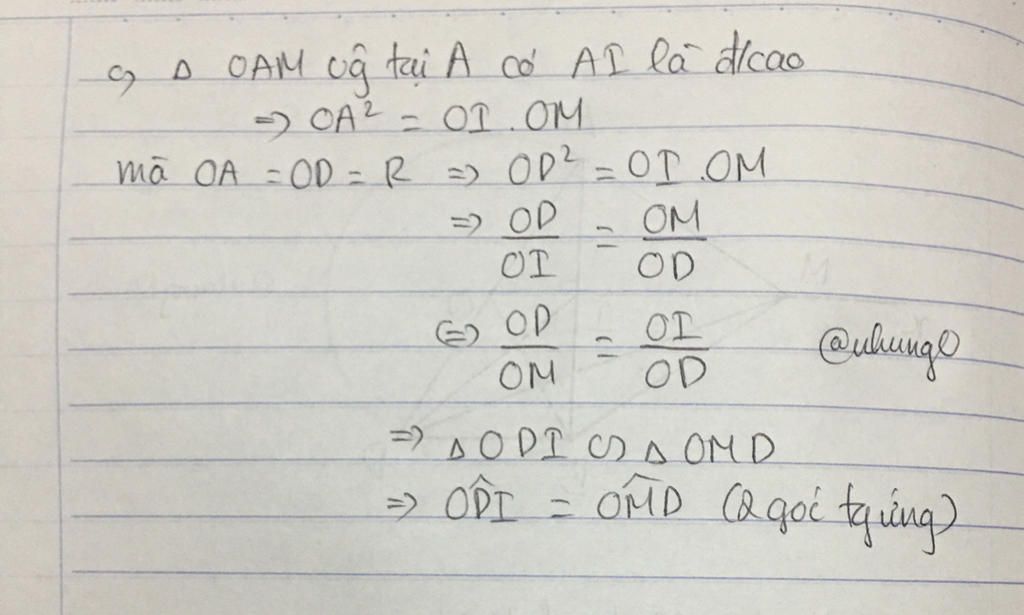 c, Δ OAM vg̃ tại A có AI là đ/cao
=> OA² = OI . OM
mà OA = OD = R => OD² = OI . OM
=> OD/OI = OM/OD
<=> OD/OM = OI/OD @uhungO
=> Δ ODI ∽ Δ OMD
=> ODI = OMD (2 góc tg ứng)